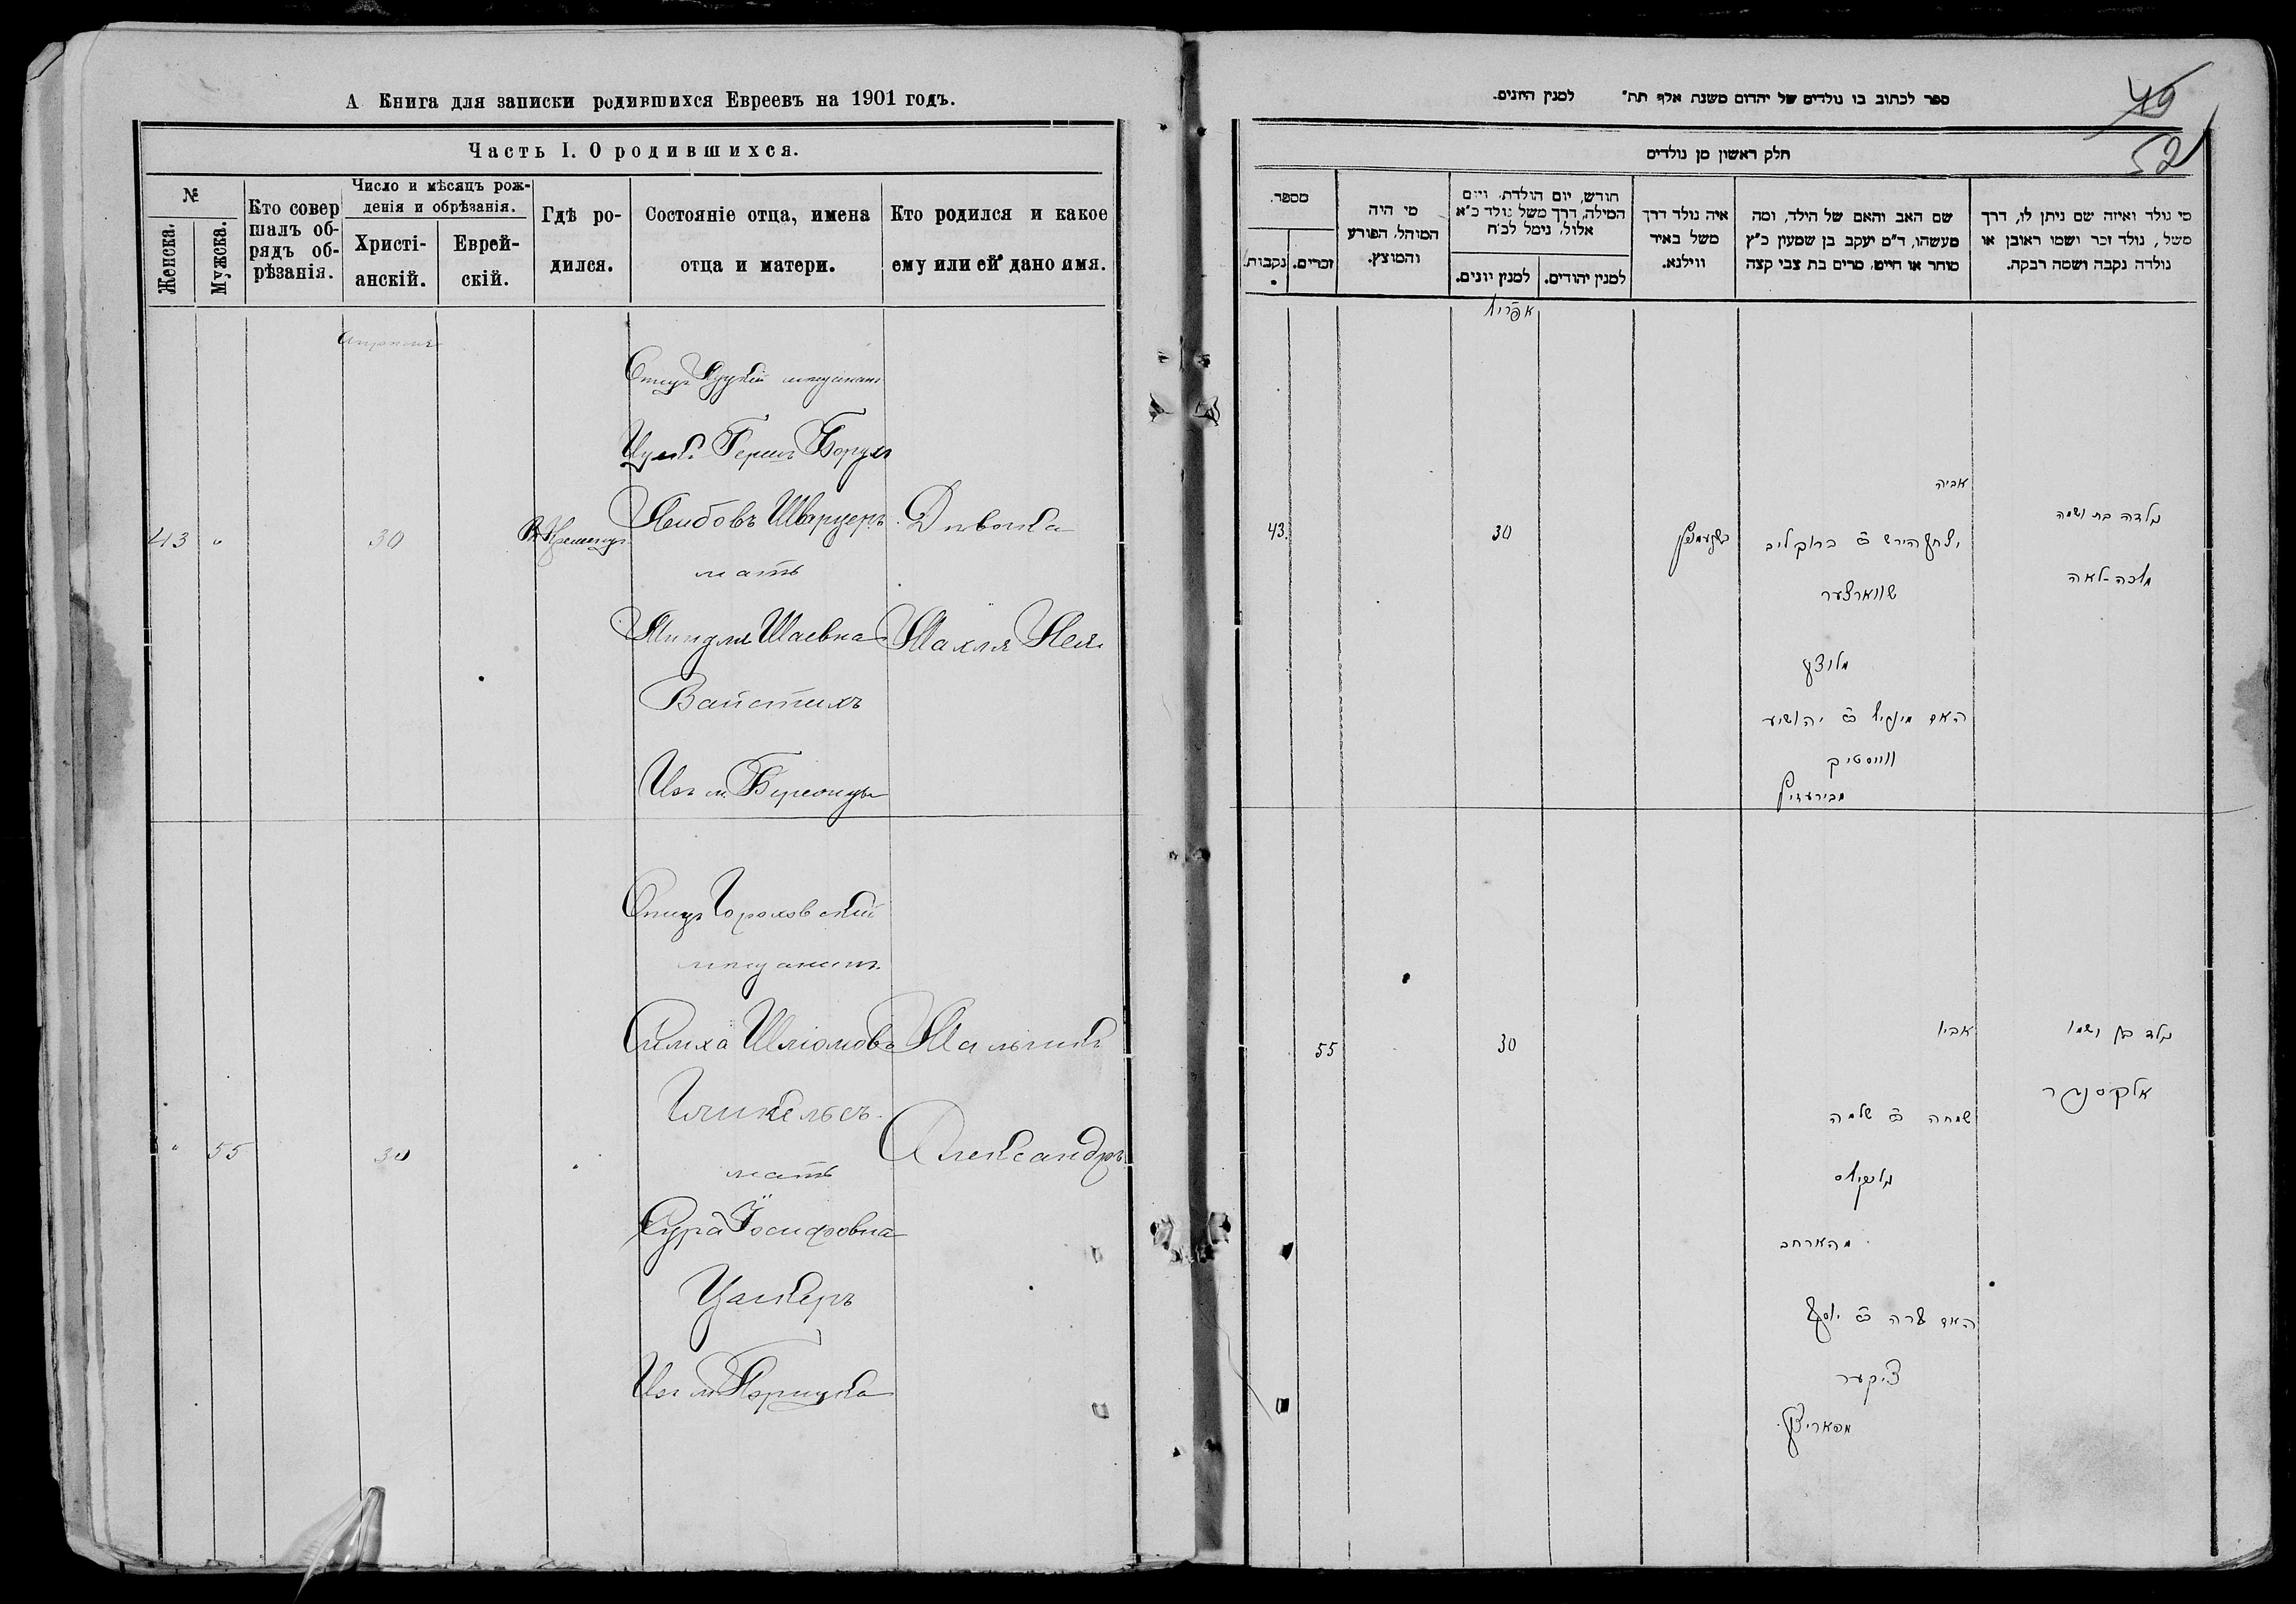 А Книга для записки родившихся Евреевъ на 1901 годъ.
Часть I. О родившихся.
№
Женска.
Мужска.
Кто совер
шалъ об-
рядъ об-
рѣзанія.
Число и мѣсяцъ рож-
денія и обрѣзанія.
Христі-
анскій.
Еврей-
скій.
Гдѣ ро-
дился.
Состояніе отца, имена
отца и матери.
Кто родился и какое
ему или ей дано имя.
Апрель
43
"
30
Отецъ Луцкій мещанинъ
Герш Борух
Лейбовъ Шварцеръ
мать
Миндля Шаевна
Вайстихъ
Изъ м.
Девочка
Махля Лея
"
55
30
Отецъ Гороховскій
мещанинъ
Симха Шліомовъ
мать
Сура Іосифовна
Цанкеръ
Изъ м. Торицка
Мальчикъ
Александръ
ספר לכתוב בו נולדים של יהדום משנת אלף תת״ למנין היונים.
49
52
חלק ראשון מן נולדים
מספר.
נקבות.
זכרים.
מי היה
המוהל, הפורע
והמוצץ.
חודש, יום הולדת, ויום
המילה, דרך משל נולד כ״א
אלול, נימל לכ״ח
למנין יונים.
למנין יהודים.
איה נולד דרך
משל באיר
ווילנא.
שם האב והאם של הילד, ומה
מעשהו, ד״מ יעקב בן שמעון כ״ץ
סוחר או חייט, מרים בת צבי קצה
מי נולד ואיזה שם ניתן לו, דרך
משל, נולד זכר ושמו ראובן או
נולדה נקבה ושמה רבקה.
אפריל
43
30
אביה
יצחק הירש ב׳ ברוך ליב
שווארצער
מלוצק
האם מינדיל ב׳ יהושיע
ווייסטיק
נולדה בת ושמה
מלכה-לאה
55
30
אביו
שמחה ב׳ שלמה
מהארחב
האם שרה ב׳ יוסף
צינקער
נולד בן ושמו
אלקסנדר